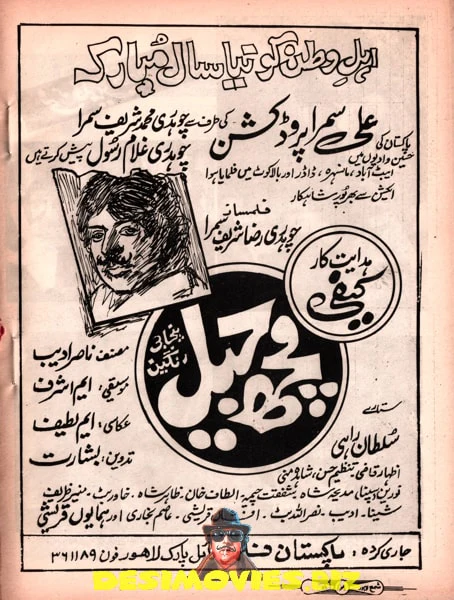 اہلِ وطن کو نیا سال مُبارک
علی سمرا پروڈکشن کی طرف سے چوہدری محمد شریف سمرا
چوہدری غلام رسول پیش کرتے ہیں
پاکستان کی
حسین وادیوں میں
ایبٹ آباد، مانسہرہ، ڈاڈر اور بالاکوٹ میں فلمایا ہوا
ایکشن سے بھرپور شاہکار
فلمساز
چوہدری رضا شریف سمرا
ہدایت کار
کیفی
پنجابی
رنگین
جیل
مصنف: ناصر ادیب
موسیقی: ایم اشرف
عکاسی: ایم لطیف
تدوین: بشارت
ستارے
سُلطان راہی
اظہار قاضی۔ تنظیم حسن۔ شاہدہ منی
مدیحہ شاہ۔ شفقت چیمہ۔ الطاف خان۔ طاہر شاہ۔ خاور بٹ۔ منیر ظریف
شیتا۔ ادیب۔ نصراللہ بٹ۔ قریشی۔ عاصم بخاری اور ہمایوں قریشی
جاری کردہ: پاکستان پارک لاہور فون ۳۶۱۱۸۹
DESIMOVIES.BIZ
شمع